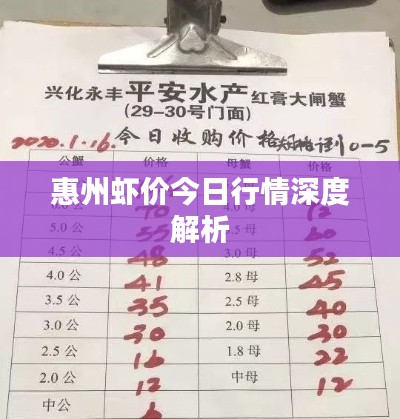 兴化永丰平安水产红膏大闸蟹
(29-30号门面)
2020.1.16.今日收购价格
公蟹 价格 母蟹 价格
惠州虾价今日行情深度
解析
5.0
4.5 48
4.0公 41 2.8母 45
3.5公 35 2.5母 40
3.0公 30 2.0母 30
2.5公 16 1.8母 22
2.0公 12 中母 12
中公